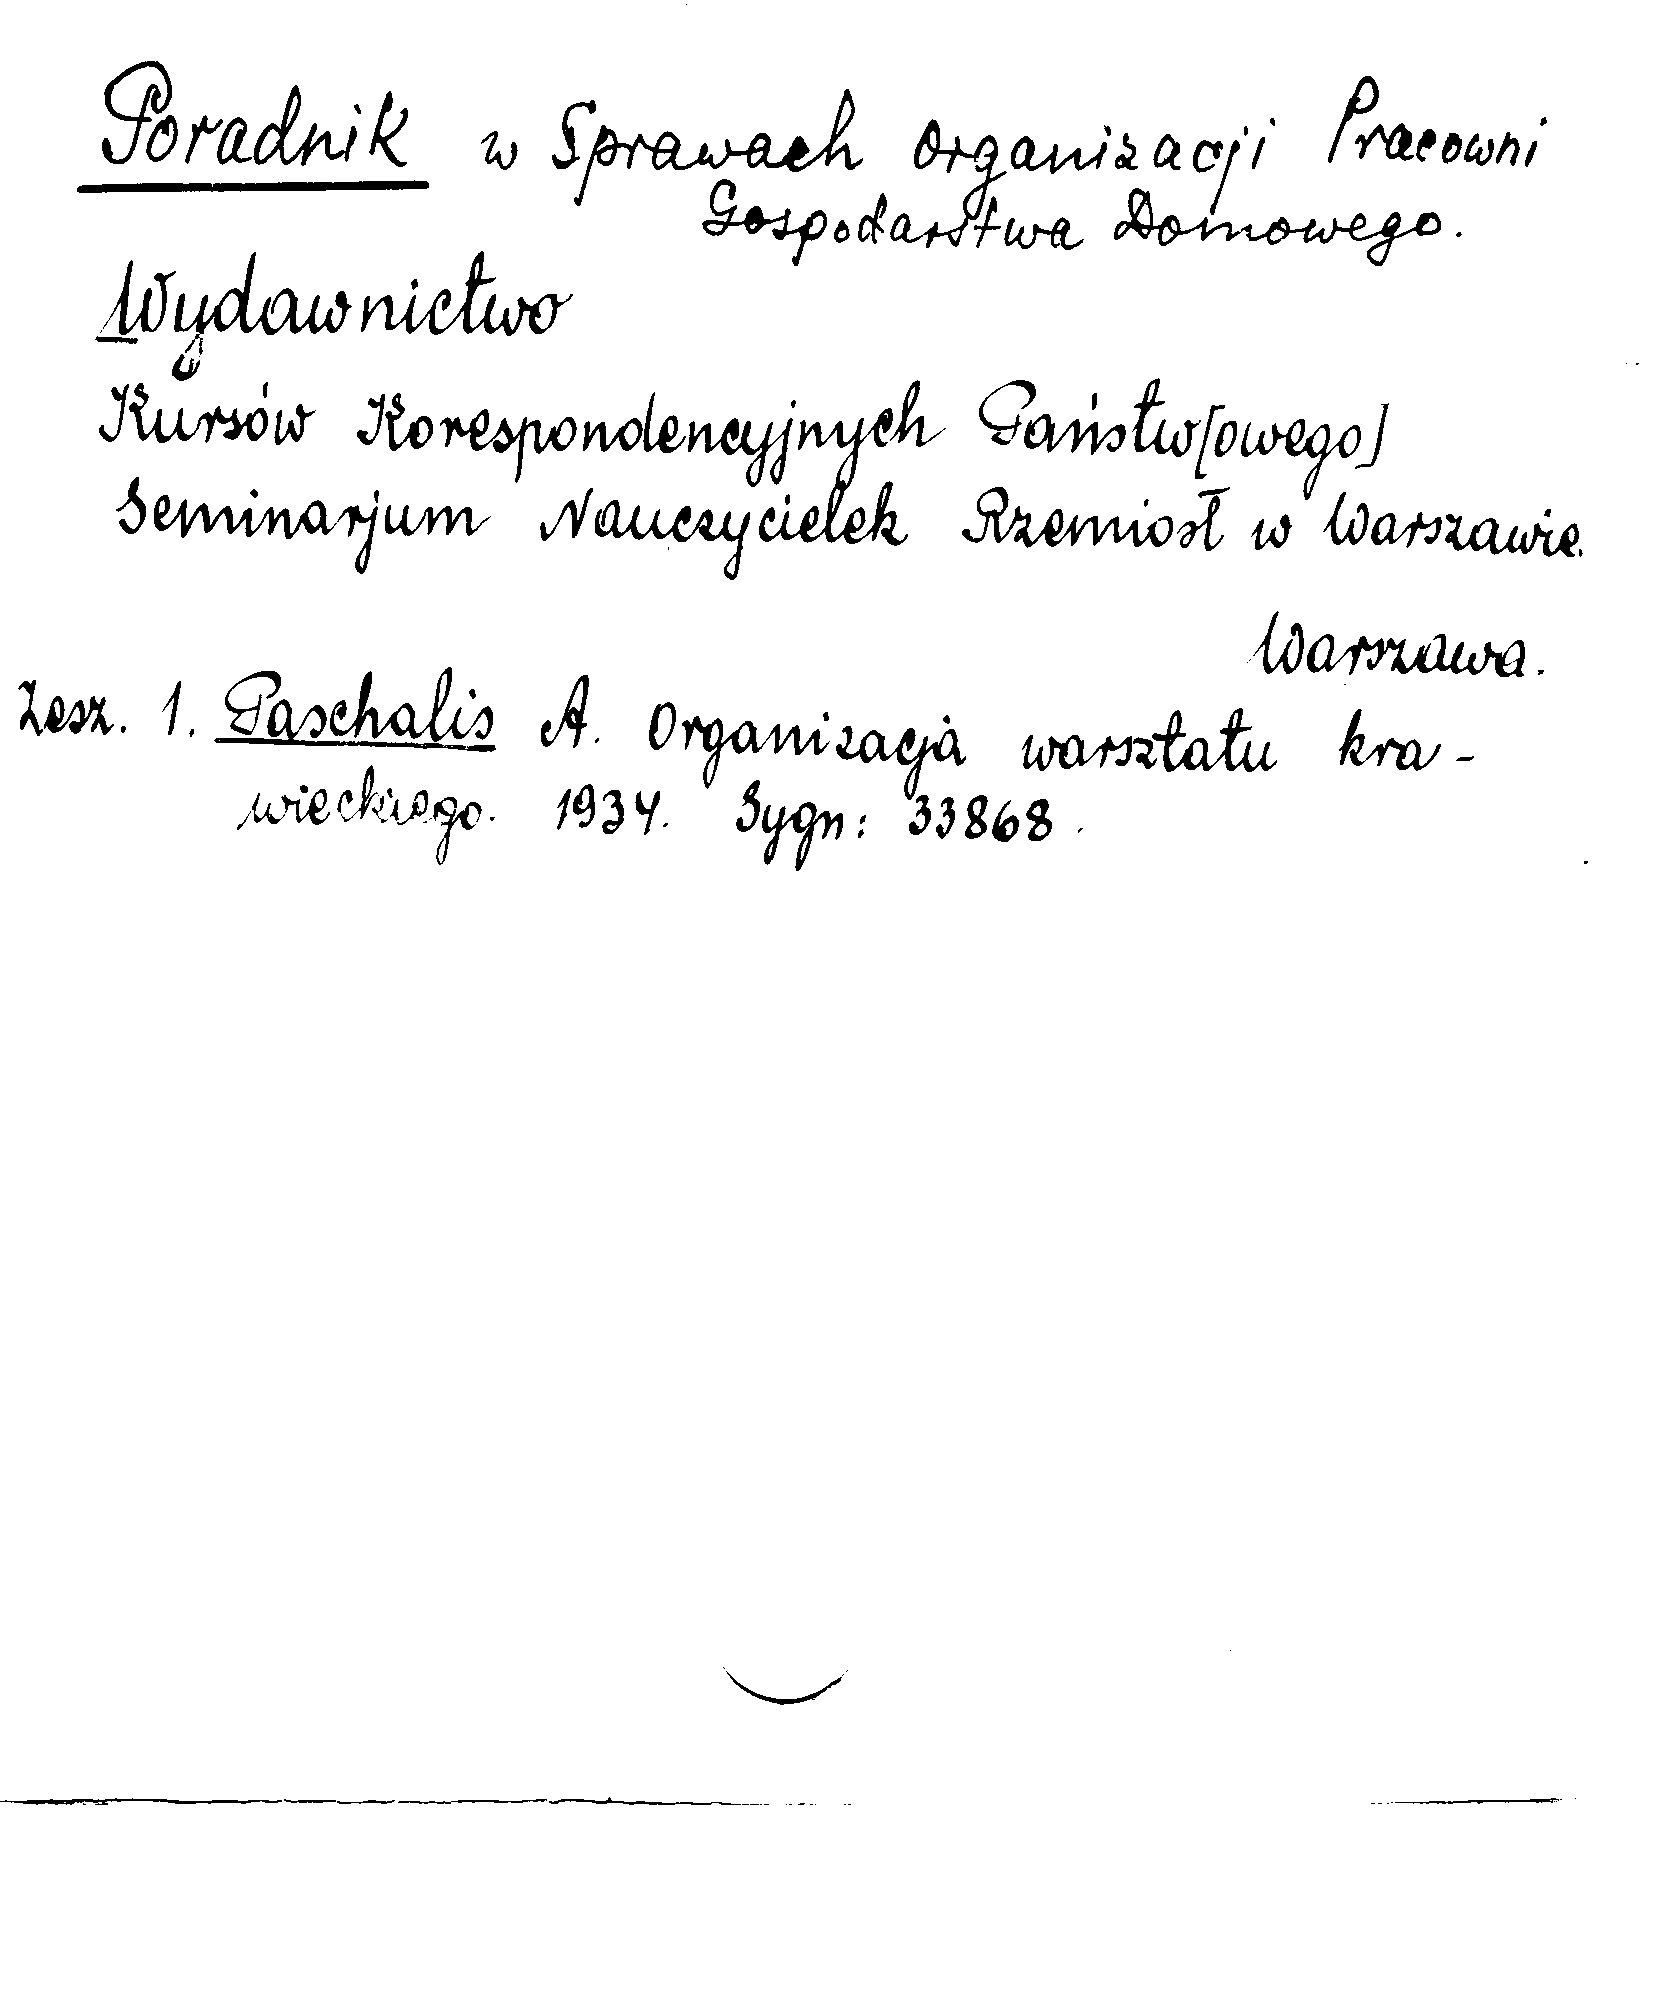 Poradnik w Sprawach Organizacji Pracowni
Gospodarstwa Domowego.
Wydawnictwo
Kursów Korespondencyjnych Państw[owego]
Seminarjum Nauczycielek Rzemiosł w Warszawie.
Warszawa.
Zesz. 1. Paschalis A. Organizacja warsztatu kra-
wieckiego. 1934. Sygn: 33868.